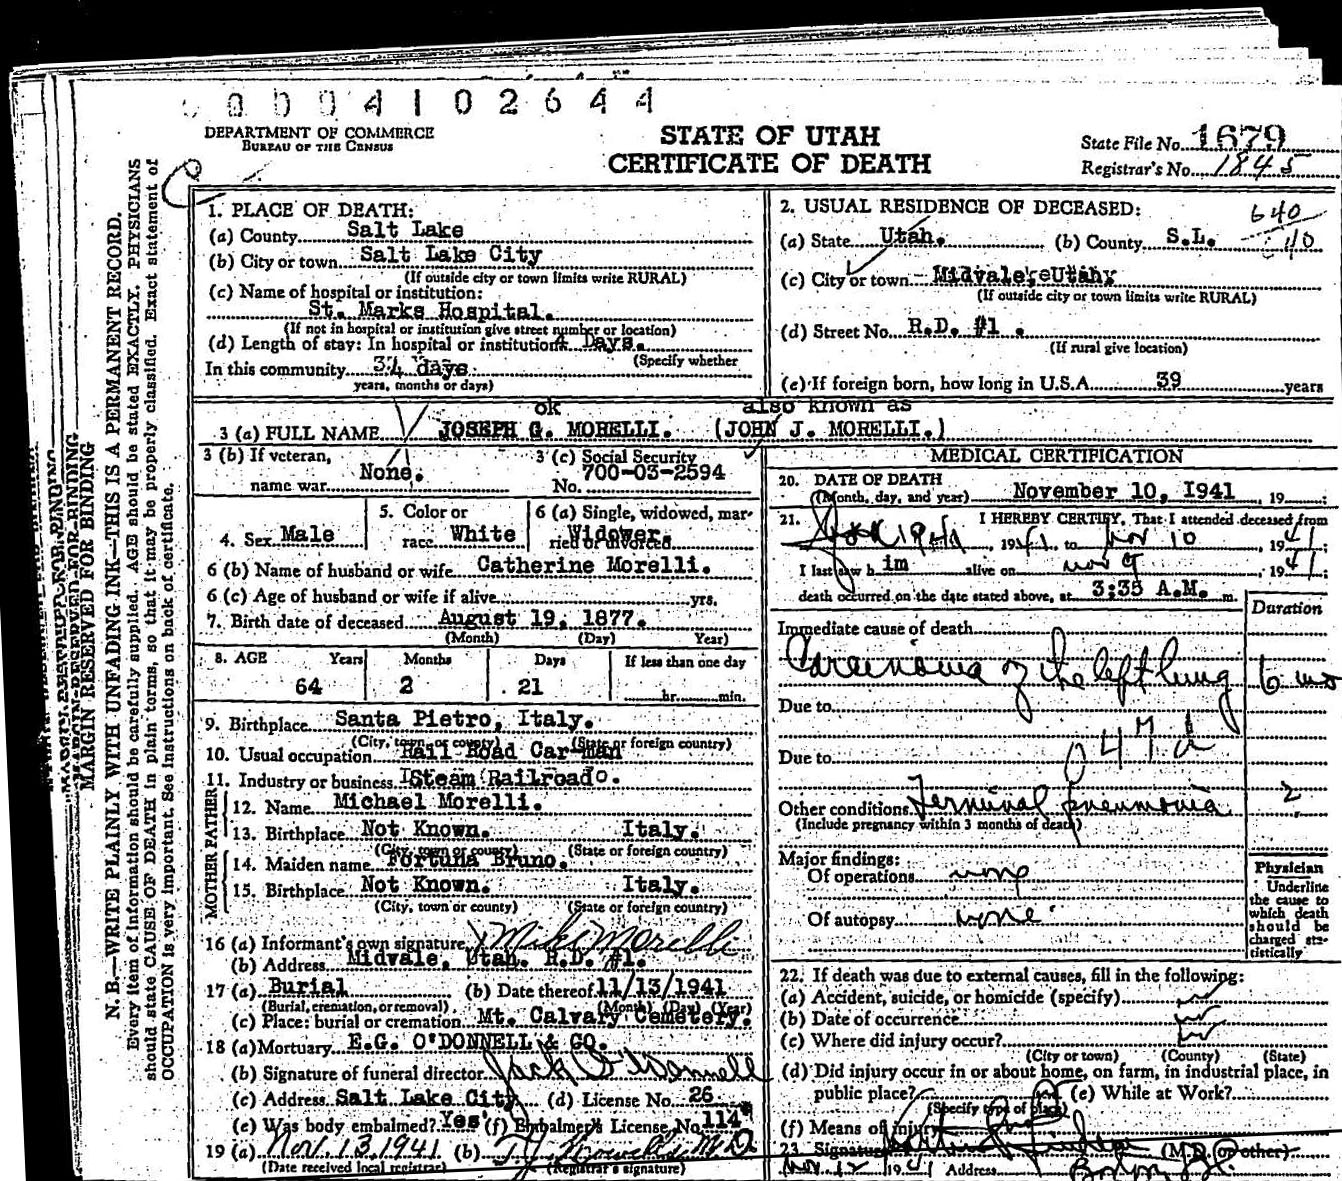 0004102644
DEPARTMENT OF COMMERCE
BUREAU OF THE CENSUS
STATE OF UTAH
CERTIFICATE OF DEATH
State File No. 1679
Registrar's No. 1845
N. B.—WRITE PLAINLY WITH UNFADING INK—THIS IS A PERMANENT RECORD.
Every item of information should be carefully supplied. AGE should be stated EXACTLY. PHYSICIANS
should state CAUSE OF DEATH in plain terms, so that it may be properly classified. Exact statement of
OCCUPATION is very important. See instructions on back of certificate.
MARGIN RESERVED FOR BINDING
1. PLACE OF DEATH:
(a) County Salt Lake
(b) City or town Salt Lake City
(If outside city or town limits write RURAL)
(c) Name of hospital or institution:
St. Marks Hospital.
(If not in hospital or institution give street number or location)
(d) Length of stay: In hospital or institution 4 Days.
(Specify whether
In this community 34 days.
years, months or days)
2. USUAL RESIDENCE OF DECEASED:
640
10
(a) State Utah. (b) County S.L.
(c) City or town Midvale, Utah
(If outside city or town limits write RURAL)
(d) Street No. R.D. #1 .
(If rural give location)
(e) If foreign born, how long in U.S.A. 39 years
ok also known as
3 (a) FULL NAME JOSEPH G. MORELLI. (JOHN J. MORELLI.)
3 (b) If veteran,
name war None.
3 (c) Social Security
No. 700-03-2594
4. Sex Male
5. Color or
race White
6 (a) Single, widowed, mar-
ried or divorced Widower.
6 (b) Name of husband or wife Catherine Morelli.
6 (c) Age of husband or wife if alive yrs.
7. Birth date of deceased August 19, 1877.
(Month) (Day) Year)
8. AGE Years Months Days If less than one day
64 2 21 hr. min.
9. Birthplace Santa Pietro, Italy.
(City, town or county) (State or foreign country)
10. Usual occupation Rail Road Car-man
11. Industry or business Steam Railroad.
FATHER
12. Name Michael Morelli.
13. Birthplace Not Known. Italy.
(City, town or county) (State or foreign country)
MOTHER
14. Maiden name Fortuna Bruno.
15. Birthplace Not Known. Italy.
(City, town or county) (State or foreign country)
16 (a) Informant's own signature Mike Morelli
(b) Address Midvale, Utah. R.D. #1.
17 (a) Burial (b) Date thereof 11/13/1941
(Burial, cremation, or removal) (Month) (Day) (Year)
(c) Place: burial or cremation Mt. Calvary Cemetery.
18 (a) Mortuary E.G. O'DONNELL & CO.
(b) Signature of funeral director Jack O'Donnell
(c) Address Salt Lake City (d) License No. 26
(e) Was body embalmed? Yes (f) Embalmer's License No. 114
19 (a) Nov. 13, 1941 (b)
(Date received local registrar) (Registrar's signature)
MEDICAL CERTIFICATION
20. DATE OF DEATH
(Month, day, and year) November 10, 1941 , 19 ;
21. I HEREBY CERTIFY, That I attended deceased from
, 1941 to Nov 10 , 1941
I last saw him alive on Nov 9 , 1941.
death occurred on the date stated above, at 3:35 A.M. m.
Duration
Immediate cause of death
Carcinoma of the left lung 6 mo
Due to
047d
Due to
Other conditions Terminal pneumonia 2
(Include pregnancy within 3 months of death)
Major findings:
Of operations none
Of autopsy none
Physician
Underline
the cause to
which death
should be
charged sta-
tistically
22. If death was due to external causes, fill in the following:
(a) Accident, suicide, or homicide (specify) no
(b) Date of occurrence no
(c) Where did injury occur? no
(City or town) (County) (State)
(d) Did injury occur in or about home, on farm, in industrial place, in
public place? (e) While at Work?
(Specify type of place)
(f) Means of injury
23. Signature (M.D. or other)
Nov 12 1941 Address